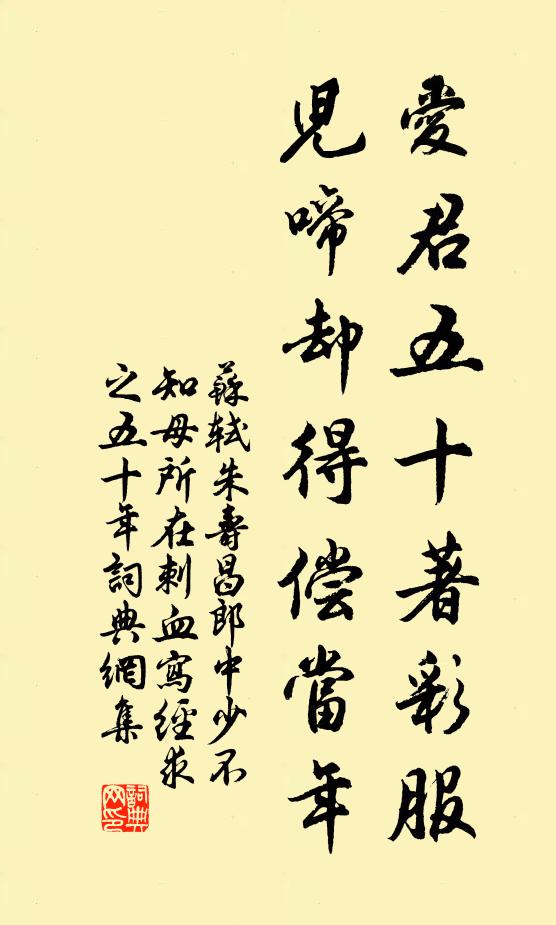 愛君五十著彩服
児啼却得偿當年
蘇軾朱壽昌郎中少不
知母所在刺血寫經求
之五十年詞典網集
詞典网印